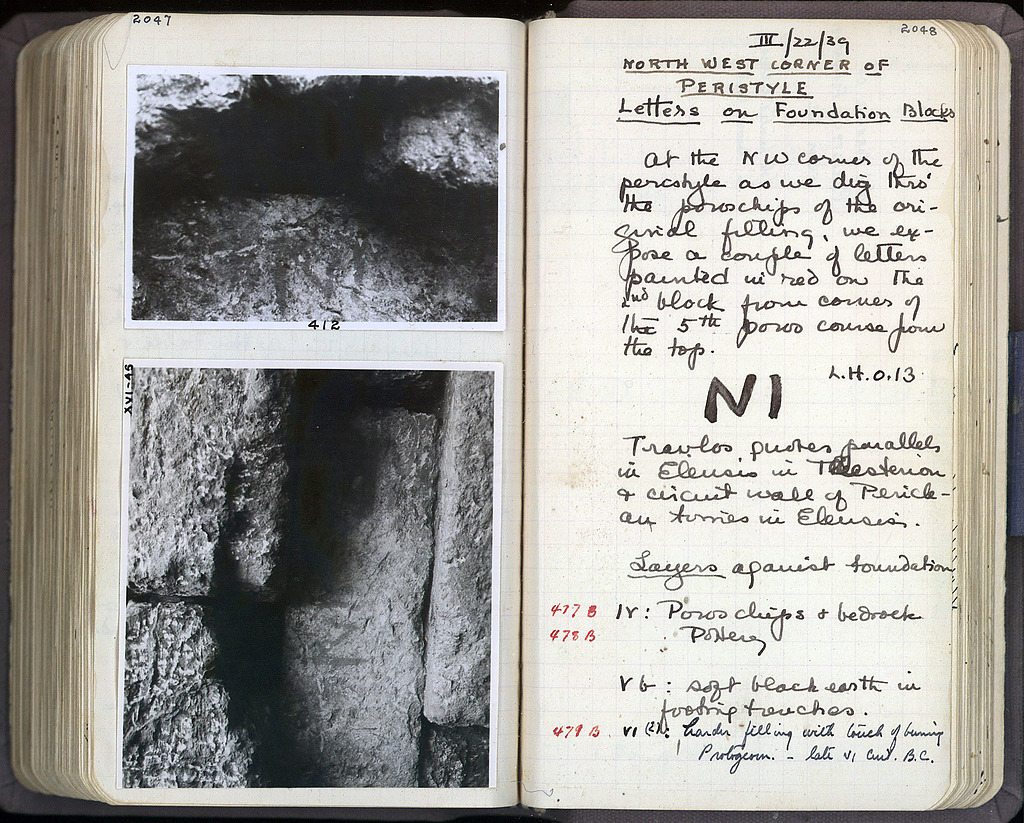 2047
412
XVI-45
2048
III/22/39
NORTH WEST CORNER OF
PERISTYLE
Letters on Foundation Blocks
At the NW corner of the
peristyle as we dig thro'
the poros chips of the ori-
ginal filling, we ex-
pose a couple of letters
painted in red on the
2nd block from corner of
the 5th poros course from
the top.
L.H. 0.13
NI
Travlos quotes parallels
in Eleusis in Telesterion
& circuit wall of Periclé-
an towers in Eleusis.
Layers against foundation
477 B IV: Poros chips & bedrock
478 B Pottery
V b: soft black earth in
footing trenches.
479 B VI (2): harder filling with touch of burning
Protogeom. - late VI Cent. B.C.